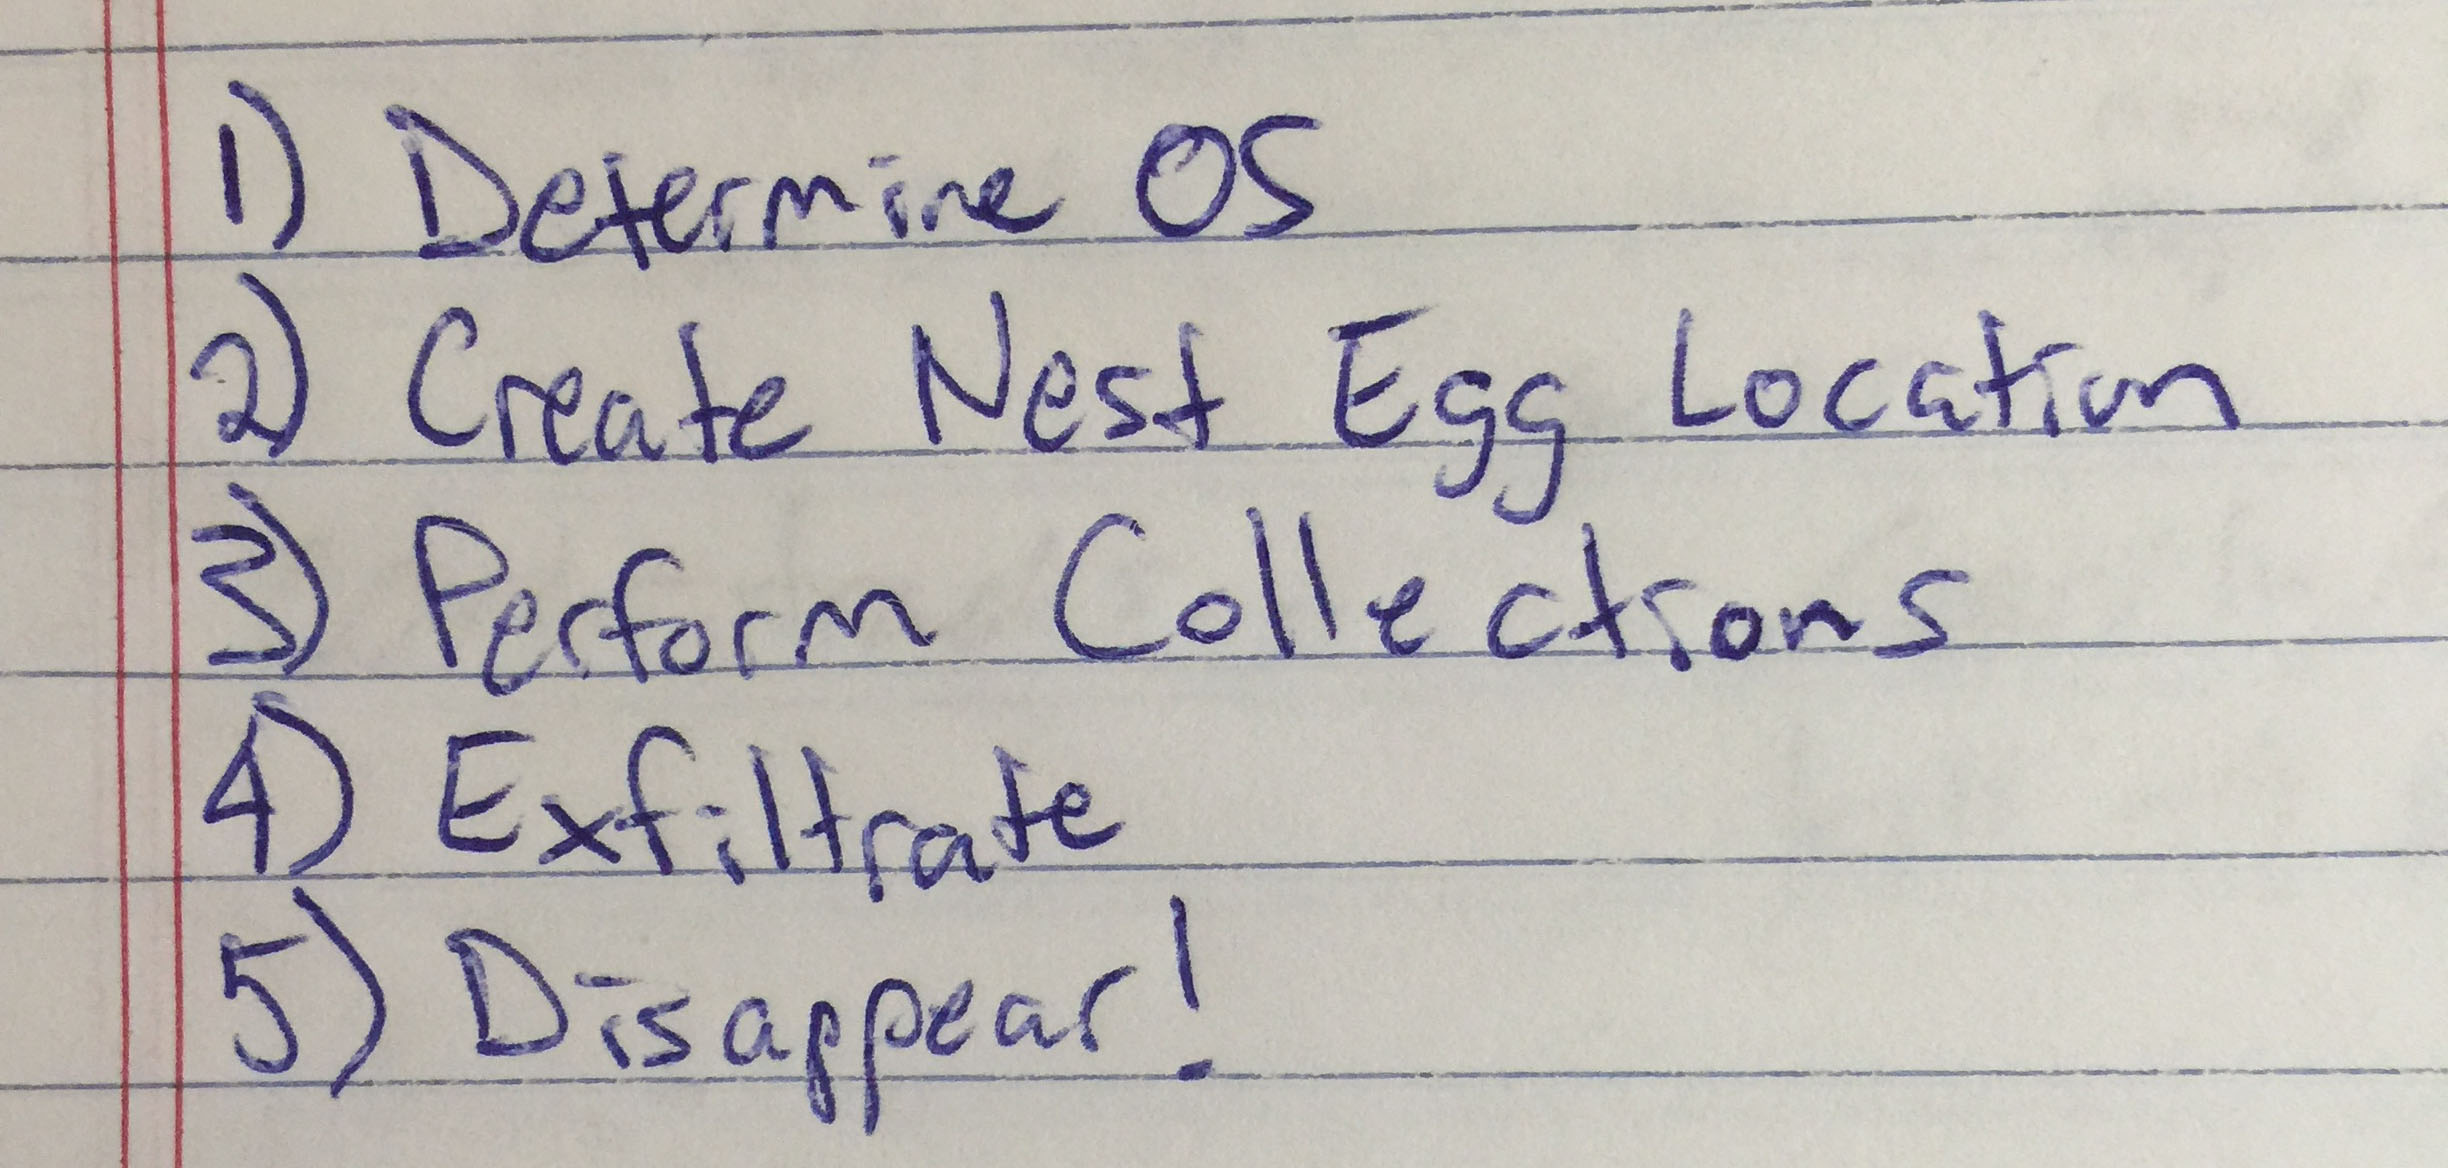 1) Determine OS
2) Create Nest Egg Location
3) Perform Collections
4) Exfiltrate
5) Disappear!